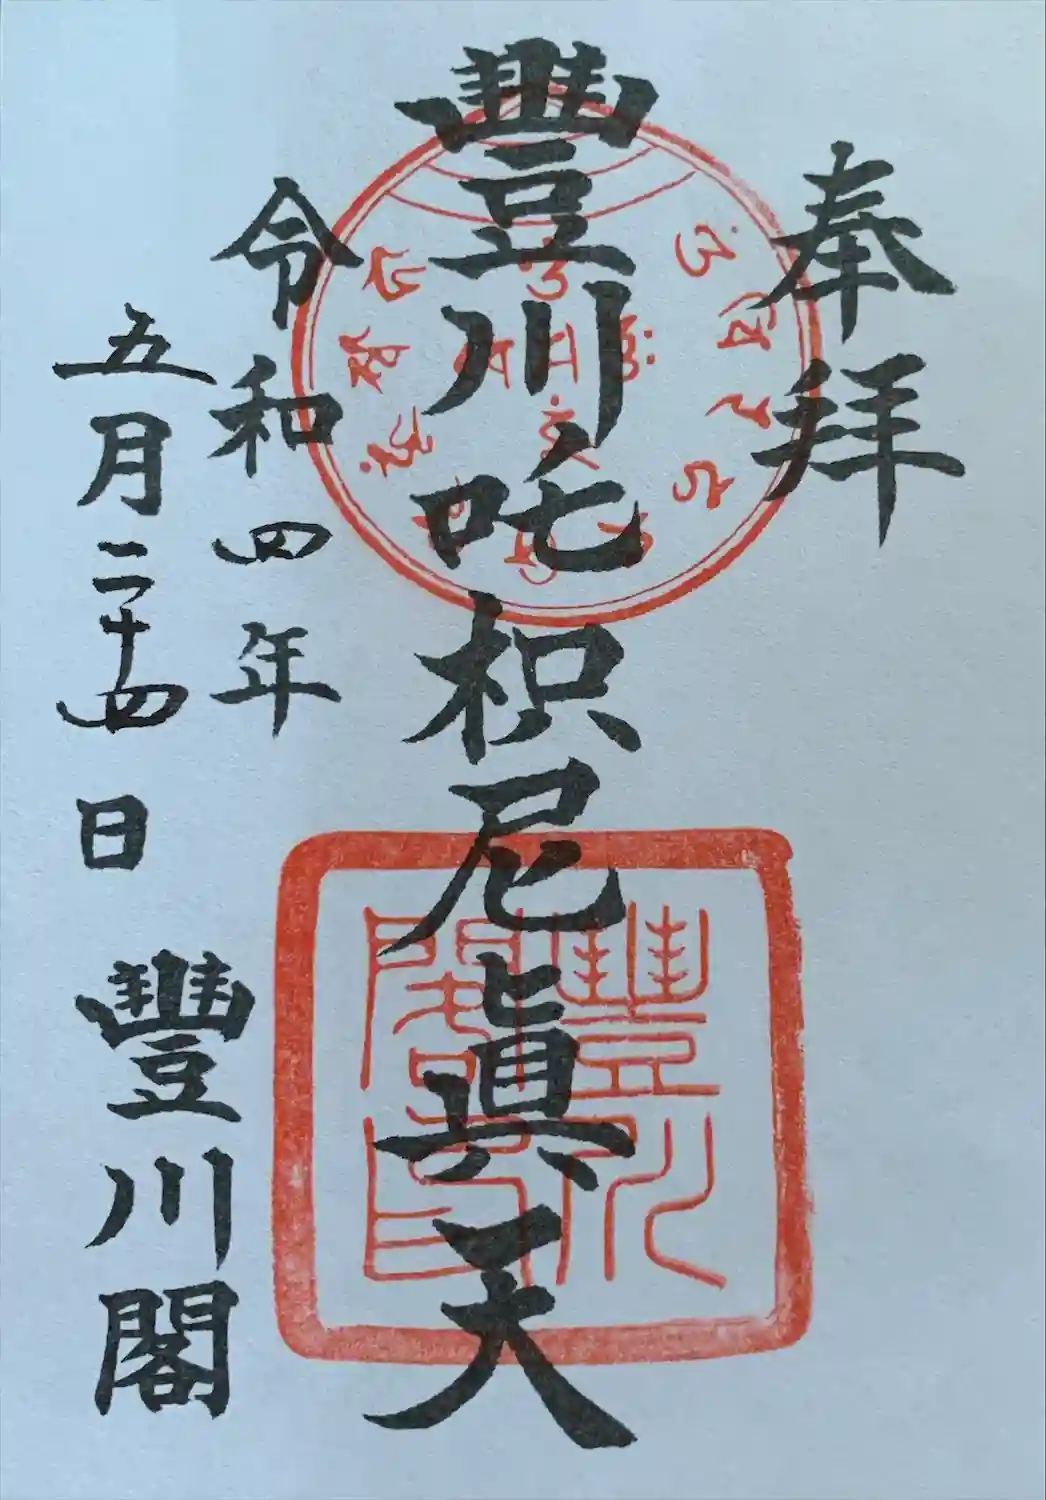 奉拜
豐川吒枳尼眞天
令和四年
五月二十四日
豐川閣
豐川閣印